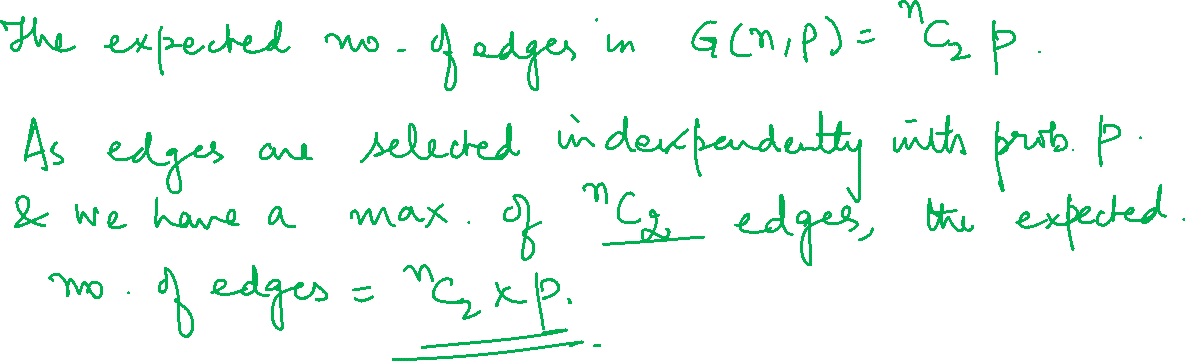 The expected no. of edges in G(n,p) = ⁿC₂ p.
As edges are selected indexpendently with prob. p.
& we have a max. of ⁿC₂ edges, the expected.
no. of edges = ⁿC₂ x p.